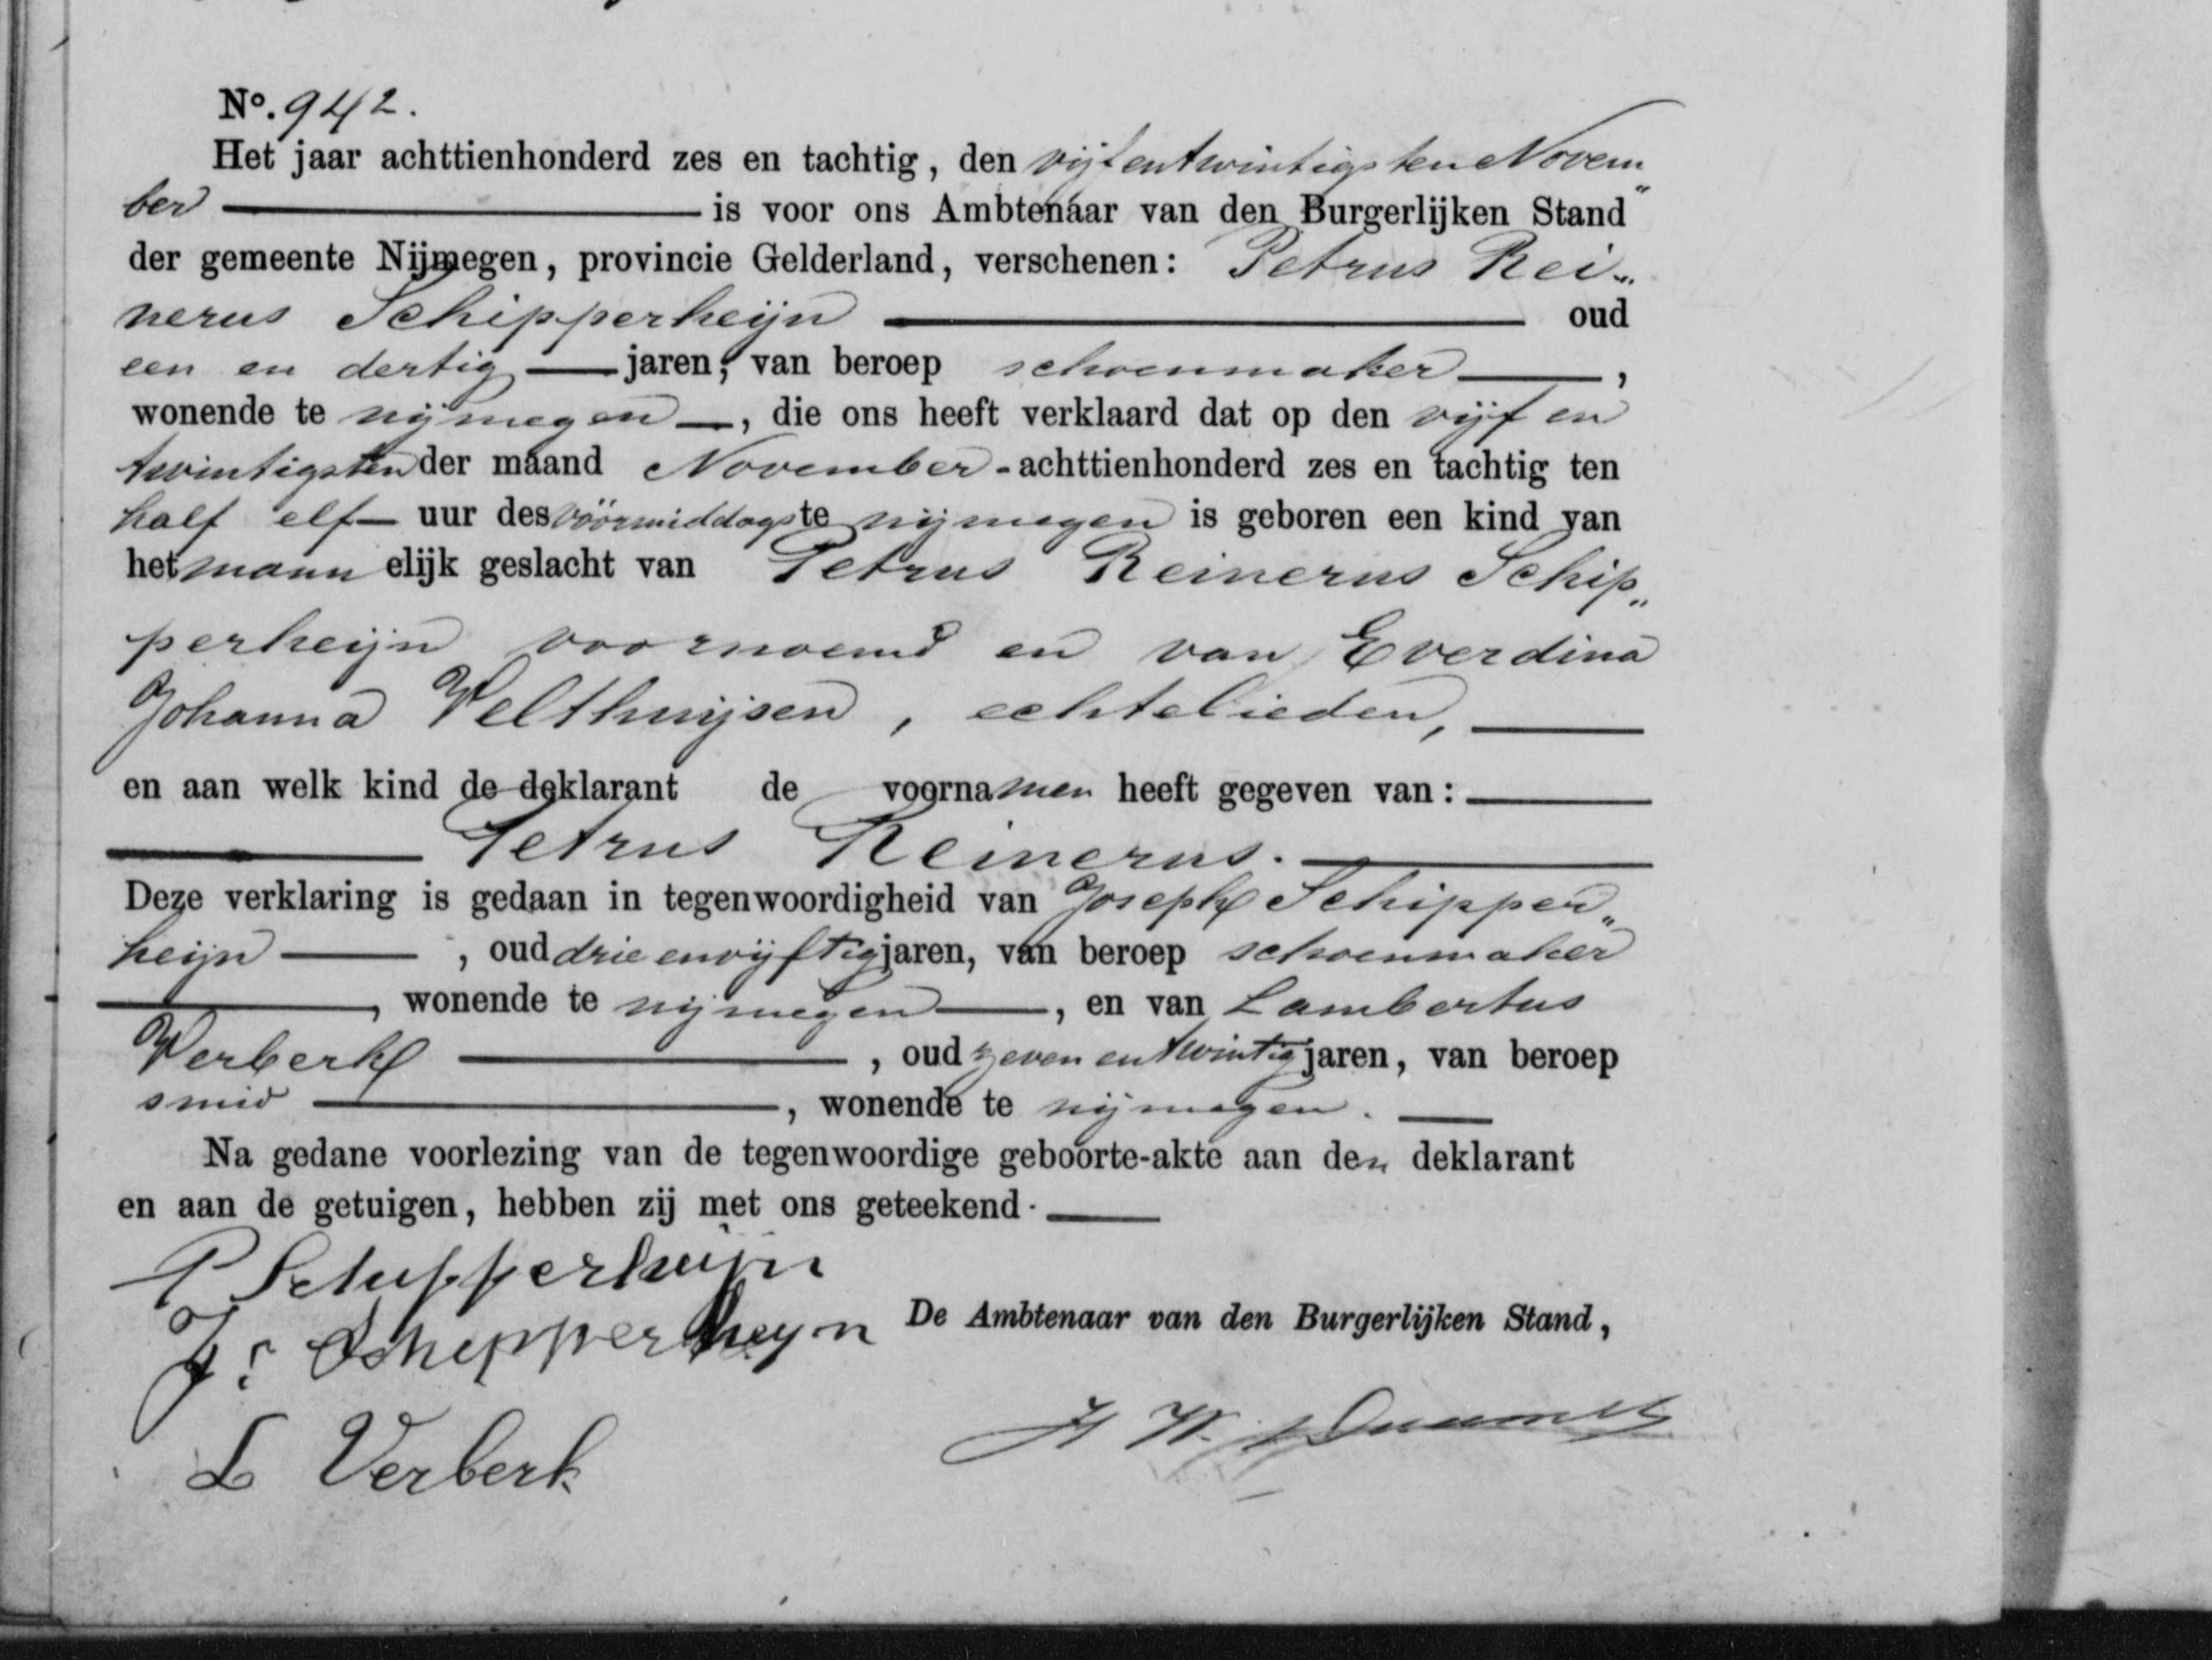 No. 942.
Het jaar achttienhonderd zes en tachtig, den vijfentwintigsten Novem„
ber is voor ons Ambtenaar van den Burgerlijken Stand
der gemeente Nijmegen, provincie Gelderland, verschenen: Petrus Rei„
nerus Schipperheijn oud
een en dertig jaren, van beroep schoenmaker ,
wonende te nijmegen , die ons heeft verklaard dat op den vijf en
twintigsten der maand November - achttienhonderd zes en tachtig ten
half elf uur des vóórmiddags te nijmegen is geboren een kind van
het mann elijk geslacht van Petrus Reinerus Schip„
perheijn voornoemd en van Everdina
Johanna Velthuijsen, echtelieden,
en aan welk kind de deklarant de voornamen heeft gegeven van:
Petrus Reinerus.
Deze verklaring is gedaan in tegenwoordigheid van Joseph Schipper„
heijn , oud drie en vijftig jaren, van beroep schoenmaker
, wonende te nijmegen , en van Lambertus
Verberk , oud zeven en twintig jaren, van beroep
smid , wonende te nijmegen.
Na gedane voorlezing van de tegenwoordige geboorte-akte aan den deklarant
en aan de getuigen, hebben zij met ons geteekend.
P Schipperheijn
Js Schipperheyn
De Ambtenaar van den Burgerlijken Stand,
L Verberk